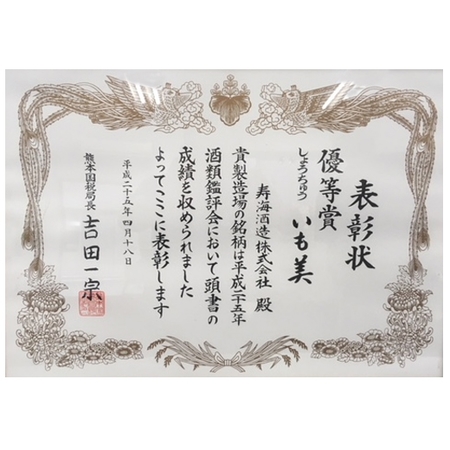 表彰状
優等賞
しょうちゅう いも美
寿海酒造株式会社 殿
貴製造場の銘柄は平成二十五年
酒類鑑評会において頭書の
成績を収められました
よってここに表彰します
平成二十五年四月十八日
熊本国税局長 吉田一宗